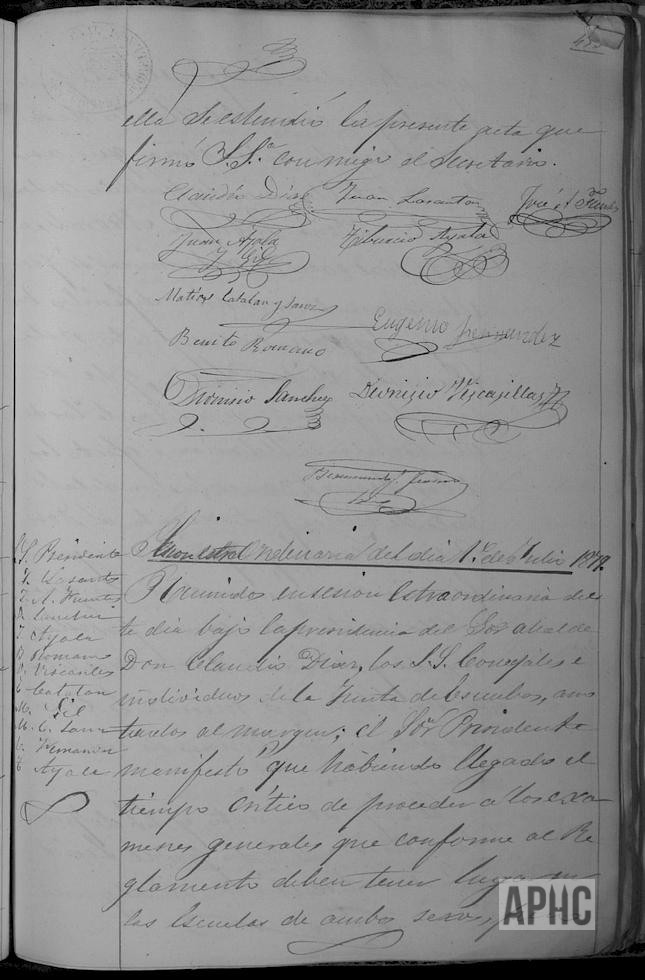 ella se estendió la presente acta que
firmó S.Sª. con migo el Secretario.
Claudio Diaz Juan Lasanta José A. Funes
Juan Ayala Tiburcio Ayala
y Gil
Matias Catalan y Sanz
Eugenio Fernandez
Benito Romano
Dionisio Sanchez Dionisio Viscasillas
Sesion estraordinaria del dia 1º. de Julio 1879.
S. Presidente
Reunidos en sesion estraordinaria de es
te dia bajo la presidencia del Sor. Alcalde
Don Claudio Diaz, los S.S. Concejales e
individuos de la Junta de Escuelas, ano
tados al margen; el Sor. Presidente
manifestó que habiendo llegado el
tiempo critico de proceder á los exa
menes generales que conforme al Re
glamento deben tener lugar en
las Escuelas de ambos sexos,
J. Lasanta
J. A. Funes
D. Sanchez
J. Ayala
B. Romano
D. Viscasillas
Catalan
Gil
M. C. Sanz
E. Fernandez
T. Ayala
APHC